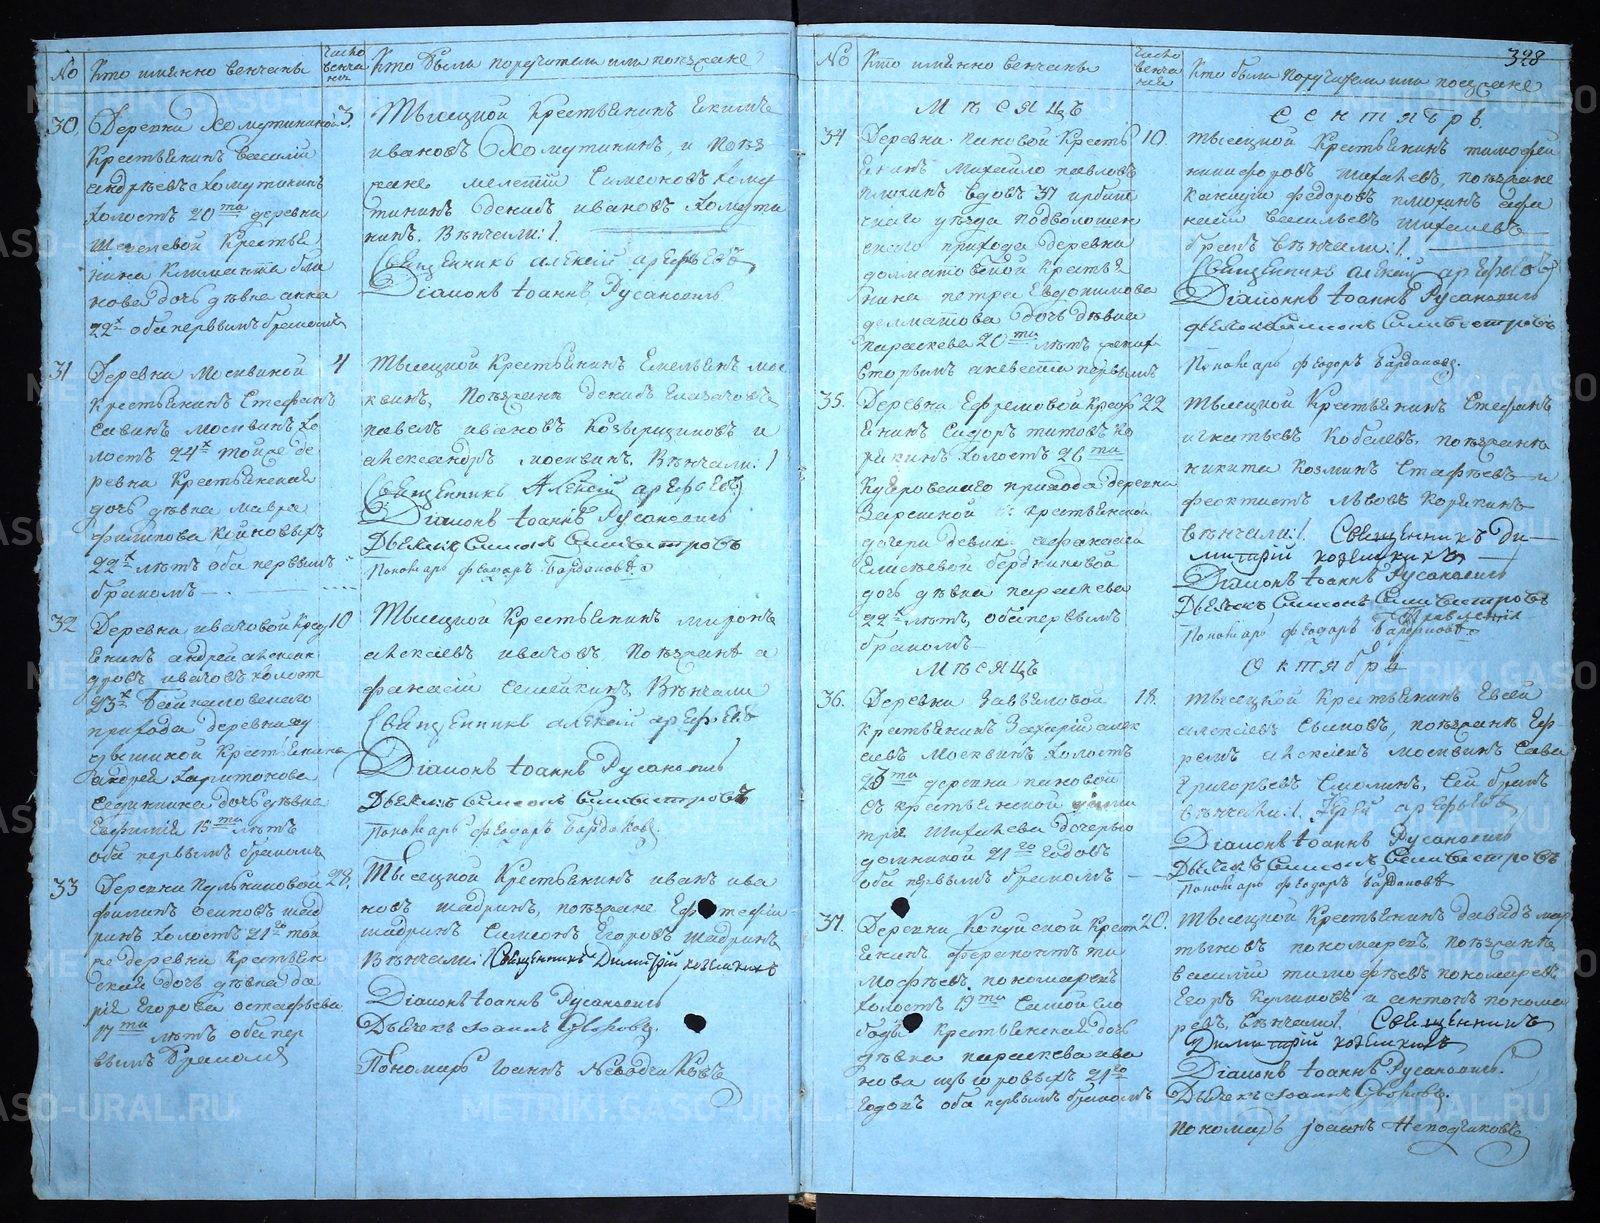 No
Кто имянно венчаны
число венчания
Кто были поручители или поезжане
30
Деревни Хомутининой
Крестьянинъ василий
андреевъ Хомутининъ
холостъ 20ти деревни
Крестья
нина
нова дочь девка анна
22х оба первымъ бракомъ
3
Тысецкой Крестьянинъ екимъ
ивановъ Хомутининъ, и поез
жане мелетий Симеоновъ хому
тининъ денисъ ивановъ хомути
нинъ. Венчали:
Священникъ алексий арефьевъ
Диаконъ Иоаннъ Русановъ
31
Деревни Москвиной
Крестьянинъ Стефанъ
Савинъ москвинъ хо
лостъ 24х тойже де
ревни Крестьянская
дочь девка мавра
филипова
22х летъ оба первымъ
бракомъ
4
Тысецкой Крестьянинъ Емельянъ мос
квинъ, Поезжане денисъ
павелъ ивановъ и
александръ москвинъ. Венчали:
Священникъ Алексий арефьевъ
Диаконъ Иоаннъ Русановъ
Дьячекъ Симеонъ Силивестровъ
Пономарь феодоръ Бардаковъ
32
Деревни ивачовой Крес
янинъ андрей алексан
дровъ ивачовъ холост
23х
прихода деревни
Крестьянина
андрея харитонова
дочь девка
Евфимия 15ти летъ
оба первымъ бракомъ
10
Тысецкой Крестьянинъ миронъ
алексеевъ ивачовъ, Поезжане а
фанасий Венчали
Священникъ алексий арефьевъ
Диаконъ Иоаннъ Русановъ
Дьячекъ Симеонъ Силивестровъ
Пономарь феодоръ Бардаковъ.
33
Деревни Пульниковой
филипъ осиповъ шад
ринъ холостъ 21го той
же деревни крестьян
ская дочь девка да
рия Егорова остафьева
17ти летъ оба пер
вымъ бракомъ
28.
Тысецкой Крестьянинъ иванъ ива
новъ шадринъ, поезжане
шадринъ Симеонъ Егоровъ шадринъ
Венчали: Священникъ Димитрий козелкихъ
Диаконъ Иоаннъ Русановъ
Дьячекъ Иоаннъ
Пономарь Иоаннъ Неводчиковъ
328
No
Кто имянно венчаны
число венчания
Кто были поручители или поезжане
Месяцъ
Сентябрь.
34
Деревни Пановой Кресть
янинъ михайло павловъ
плюхинъ вдовъ 37 ирбит
скаго уезда подволошен
скаго прихода деревни
долматовской Кресть
янина петра Евдокимова
долматова дочь девка
параскева 20ти летъ
вторымъ а невеста первымъ
10.
Тысецкой Крестьянинъ тимофей
никифоровъ михалевъ, поезжане
федоровъ плюхинъ афа
насий васильевъ михалевъ
бракъ венчали:
Священникъ алексий арефьевъ
Диаконъ Иоаннъ Русановъ
Дьячекъ Симеонъ Силивестровъ
Пономарь феодоръ Бардаковъ.
35.
Деревни Ефремовой Крест
янинъ Сидоръ титовъ ко
рякинъ холостъ 26ти
прихода деревни
Зарешной крестьянской
дочери девки афанасия
Елисеевой бердниковой
дочь девка параскева
22х летъ, оба первымъ
бракомъ
22
Тысецкой Крестьянинъ Стефанъ
игнатьевъ Кобелевъ, поезжане
никита козминъ Стафеевъ и
феоктистъ львовъ Корякинъ
венчали: Священникъ Ди
митрий козелкихъ
Диаконъ Иоаннъ Русановъ
Дьячекъ Симеонъ Силивестровъ
Пономарь феодоръ Бардаковъ
Месяцъ
Октябрь
36.
Деревни Завьяловой
крестьянинъ Захарий алек
сеевъ Москвинъ холостъ
23ти деревни пановой
съ крестьянской дими
трия Михалева дочерью
домникой 21го годовъ
оба первымъ бракомъ
18.
Тысецкой Крестьянинъ Евсей
алексеевъ, поезжане Еф
ремъ алексеевъ москвинъ Сава
григорьевъ Смолинъ, сей бракъ
венчали: Иерей арефьевъ
Диаконъ Иоаннъ Русановъ
Дьячекъ Симеонъ Силивестровъ
Пономарь феодоръ Бардаковъ
37.
Деревни Крест
янинъ ферапонтъ ти
мофеевъ пономаревъ
холостъ 19ти самой сло
боды Крестьянская дочь
девка параскева ива
нова 21го
годовъ оба первымъ бракомъ
20.
Тысецкой Крестьянинъ давидъ мар
тыновъ пономаревъ, поезжане
василий тимофеевъ пономаревъ
Егоръ и антонъ понома
ревъ, венчали. Священникъ
Димитрий козелкихъ
Диаконъ Иоаннъ Русановъ.
Дьячекъ Иоаннъ
Пономарь Иоаннъ Неводчиковъ
METRIKI.GASO-URAL.RU